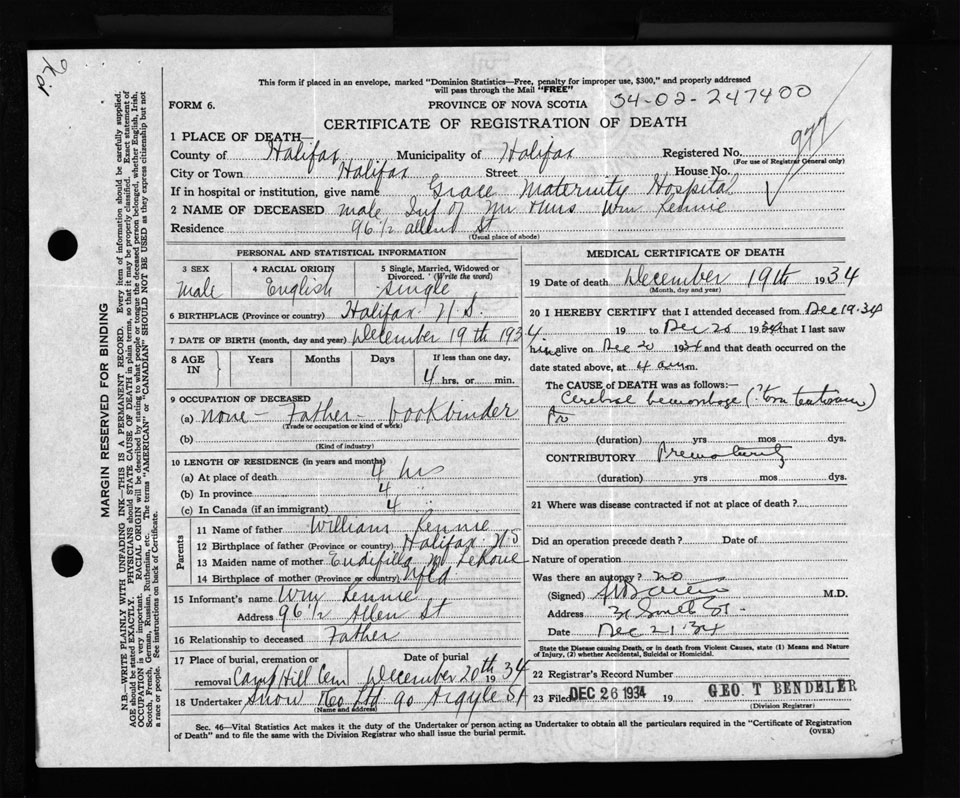 This form if placed in an envelope, marked "Dominion Statistics—Free, penalty for improper use, $300," and properly addressed
will pass through the Mail "FREE"
FORM 6.
PROVINCE OF NOVA SCOTIA
34-02-247400
CERTIFICATE OF REGISTRATION OF DEATH
977
1 PLACE OF DEATH—
County of Halifax Municipality of Halifax Registered No.
(For use of Registrar General only)
City or Town Halifax Street House No.
If in hospital or institution, give name Grace Maternity Hospital
2 NAME OF DECEASED Male Inf of Mr Mrs Wm Rennie
Residence 96 1/2 Allen St
(Usual place of abode)
PERSONAL AND STATISTICAL INFORMATION
3 SEX Male
4 RACIAL ORIGIN English
5 Single, Married, Widowed or Divorced. (Write the word) Single
6 BIRTHPLACE (Province or country) Halifax N S.
7 DATE OF BIRTH (month, day and year) December 19th 1934
8 AGE IN Years Months Days If less than one day,
4 hrs. or min.
9 OCCUPATION OF DECEASED
(a) None - Father - bookbinder
(Trade or occupation or kind of work)
(b)
(Kind of industry)
10 LENGTH OF RESIDENCE (in years and months)
(a) At place of death 4 hrs
(b) In province 4 "
(c) In Canada (if an immigrant) 4 "
Parents
11 Name of father William Rennie
12 Birthplace of father (Province or country) Halifax N.S
13 Maiden name of mother
14 Birthplace of mother (Province or country) Nfld
15 Informant's name Wm Rennie
Address 96 1/2 Allen St
16 Relationship to deceased Father
17 Place of burial, cremation or Date of burial
removal Camp Hill Cem December 20th 1934
18 Undertaker Snow & Co Ltd 90 Argyle St
(Name and address)
MEDICAL CERTIFICATE OF DEATH
19 Date of death December 19th 1934
(Month, day and year)
20 I HEREBY CERTIFY that I attended deceased from Dec 19.34
19 to Dec 20 1934 that I last saw
him alive on Dec 20 1934 and that death occurred on the
date stated above, at 4 a.m.
The CAUSE of DEATH was as follows:—
Cerebral hemorrhage (? torn tentorium)
(duration) yrs mos dys.
CONTRIBUTORY Prematurity
(duration) yrs mos dys.
21 Where was disease contracted if not at place of death?
Did an operation precede death? Date of
Nature of operation
Was there an autopsy? no
(Signed) M.D.
Address
Date Dec 21 34
State the Disease causing Death, or in death from Violent Causes, state (1) Means and Nature
of Injury, (2) whether Accidental, Suicidal or Homicidal.
22 Registrar's Record Number
23 Filed DEC 26 1934 19 GEO. T BENDELER
(Division Registrar)
Sec. 46—Vital Statistics Act makes it the duty of the Undertaker or person acting as Undertaker to obtain all the particulars required in the "Certificate of Registration
of Death" and to file the same with the Division Registrar who shall issue the burial permit.
(OVER)
MARGIN RESERVED FOR BINDING
N.B.—WRITE PLAINLY WITH UNFADING INK—THIS IS A PERMANENT RECORD. Every item of information should be carefully supplied.
AGE should be stated EXACTLY. PHYSICIANS should STATE CAUSE OF DEATH in plain terms, so that it may be properly classified. Exact statement of
OCCUPATION is very important. RACIAL ORIGIN will be described by stating to what people or tongue the deceased person belonged, whether English, Irish,
Scotch, French, German, Russian, Ruthenian, etc. The terms "AMERICAN" or "CANADIAN" SHOULD NOT BE USED as they express citizenship but not
a race or people. See instructions on back of Certificate.